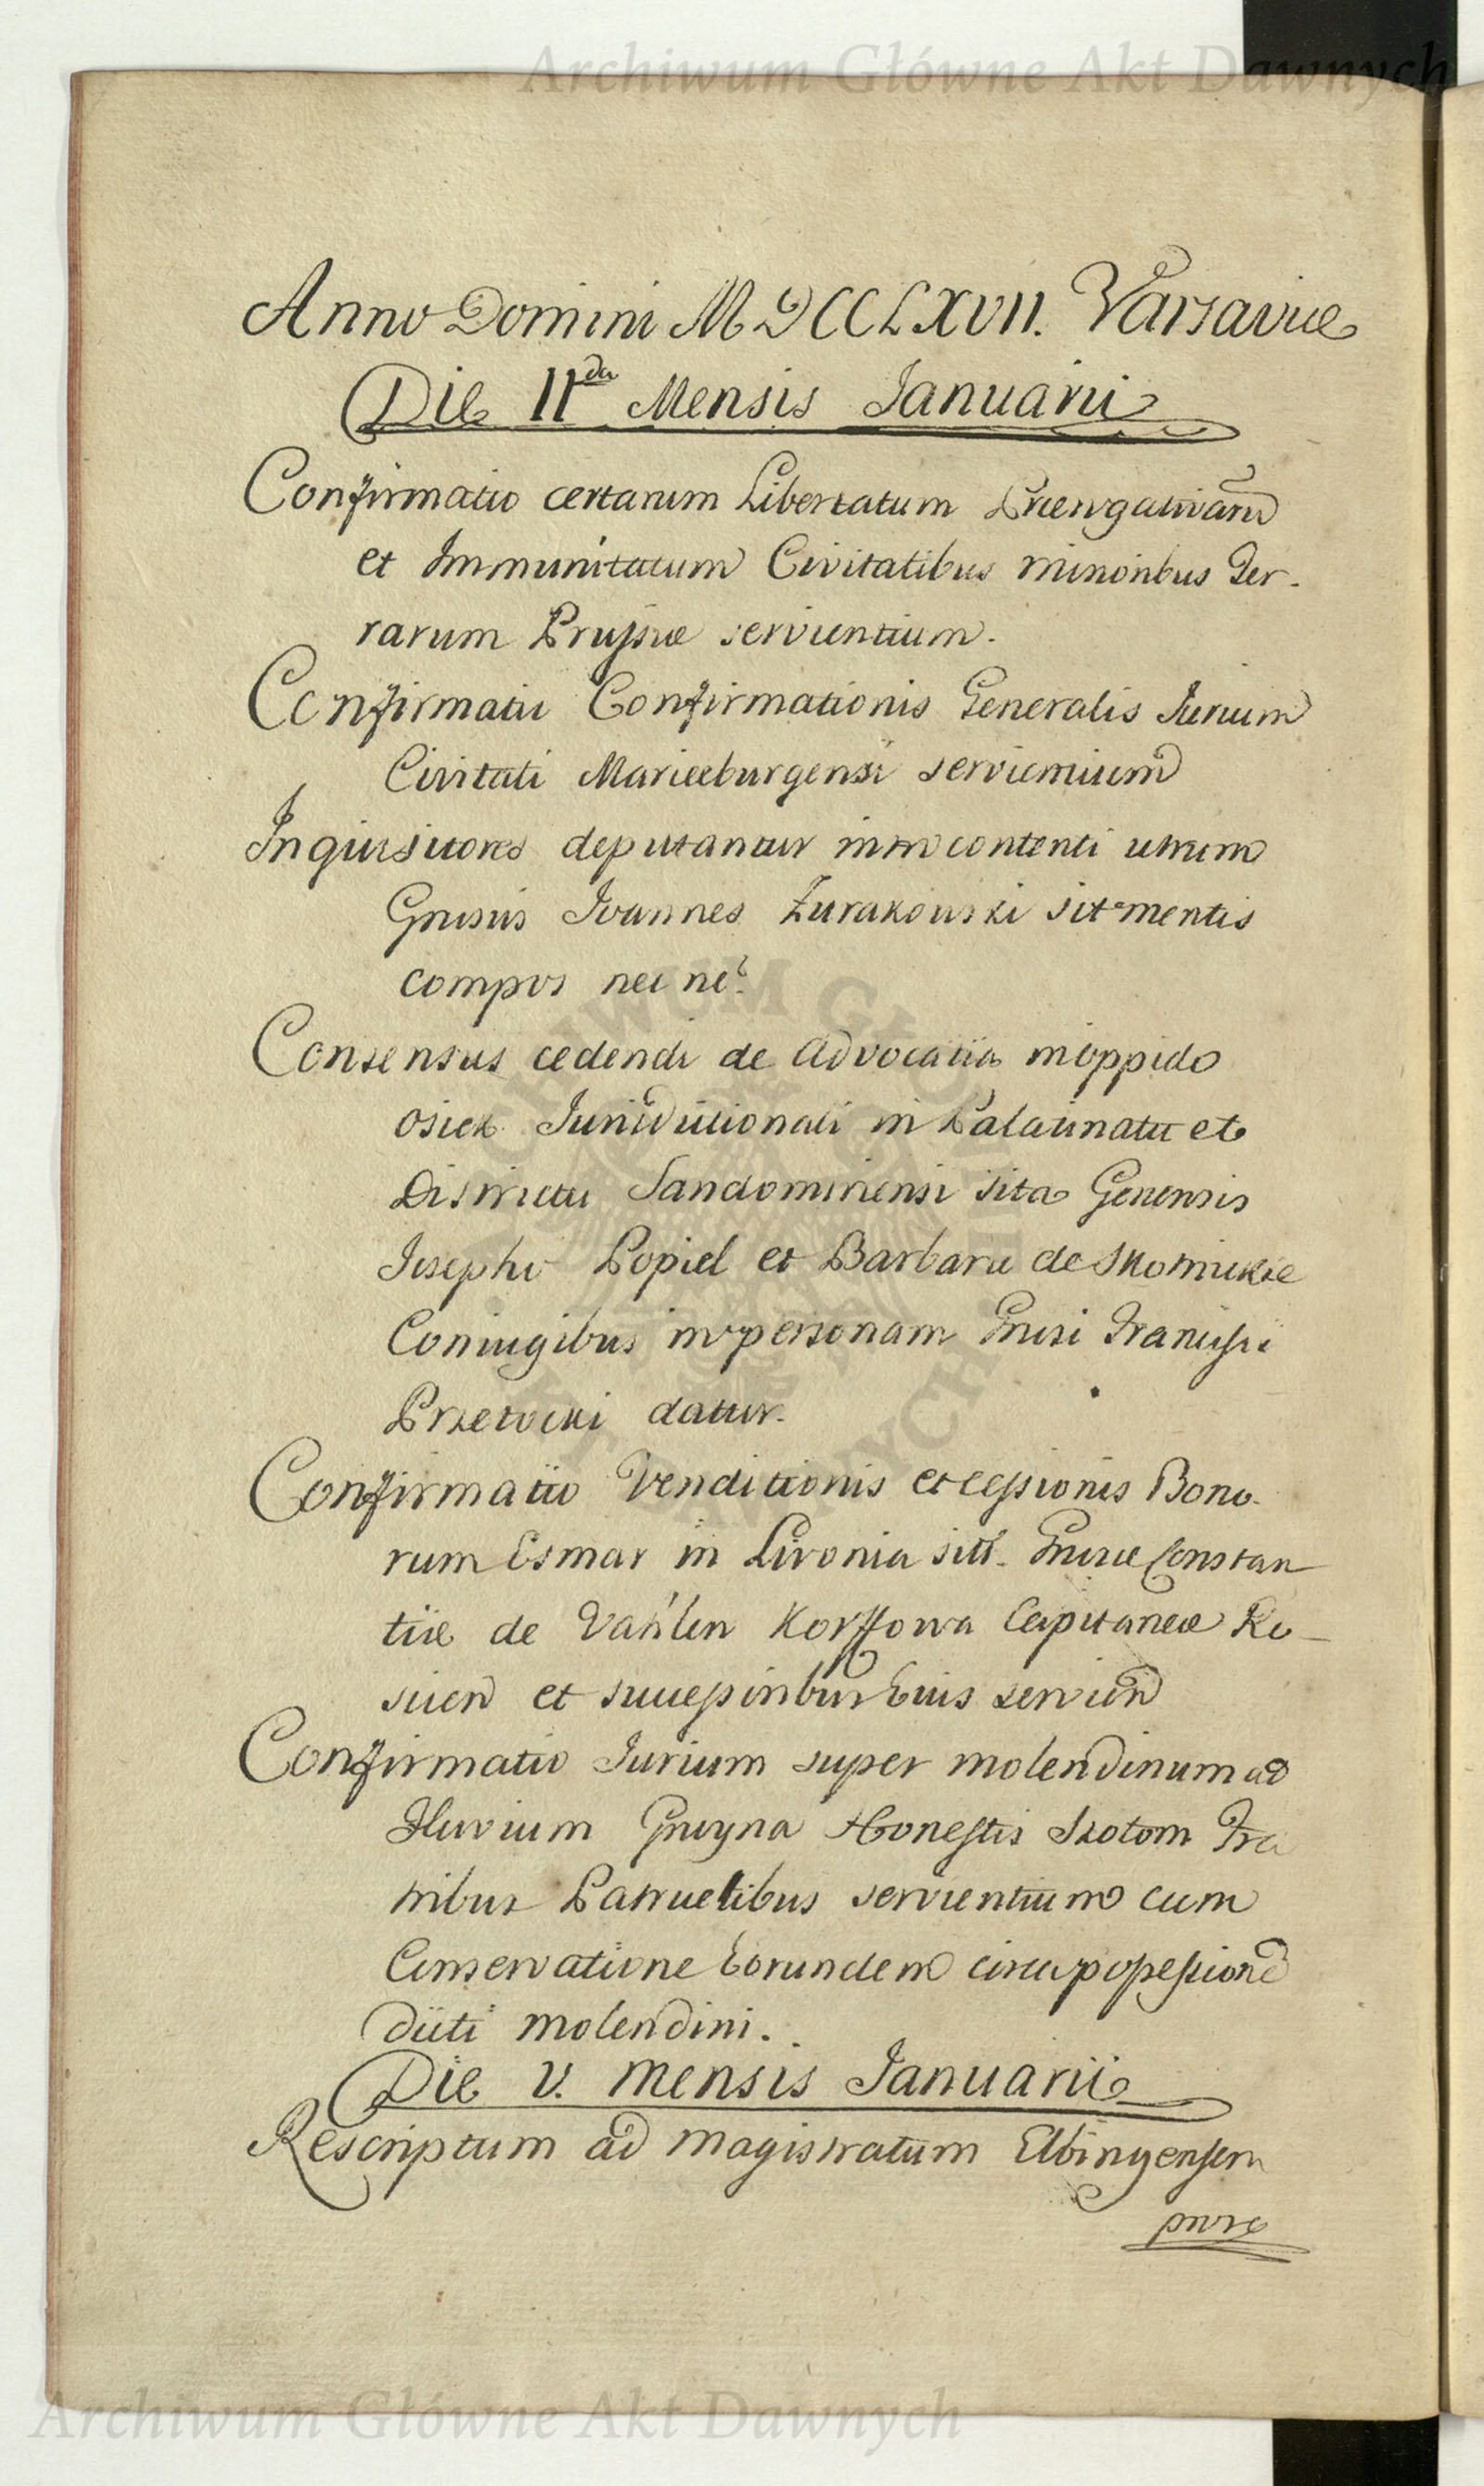 Archiwum Główne Akt Dawnych
Anno Domini MDCCLXVII. Varsaviæ
Die IIda Mensis Januarii
Confirmatio certarum Libertatum Prærogativarū
et Immunitatum Civitatibus minoribus Ter-
rarum Prussiæ servientium.
Confirmatio Confirmationis Generalis Jurium
Civitati Mariæburgensi servientium
Inquisitores deputantur introcontenti utrum
Gnrsus Joannes Żurakowski sit mentis
compos nec ne?
Consensus cedendi de Advocatia in oppido
Osiek Jurisdictionali in Palatinatu et
Districtu Sandomiriensi sita Generosis
Josepho Popiel et Barbaræ de Skotnickie
Coniugibus in personam Gnrsi Francisci
Przetocki datur.
Confirmatio Venditionis et cessionis Bono-
rum Esmar in Livonia sitt. Gnrsæ Constan
tiæ de Vahlen Korffowa Capitaneæ Ro-
sien et successoribus Eius servien
Confirmatio Jurium super molendinum ad
Fluvium Gwyna Honestis Szotom Fra
tribus Patruelibus servientium cum
Conservatione Eorundem circa possessione
dicti molendini.
Die V. Mensis Januarii
Rescriptum ad Magistratum Elbingensem
pure
Archiwum Główne Akt Dawnych